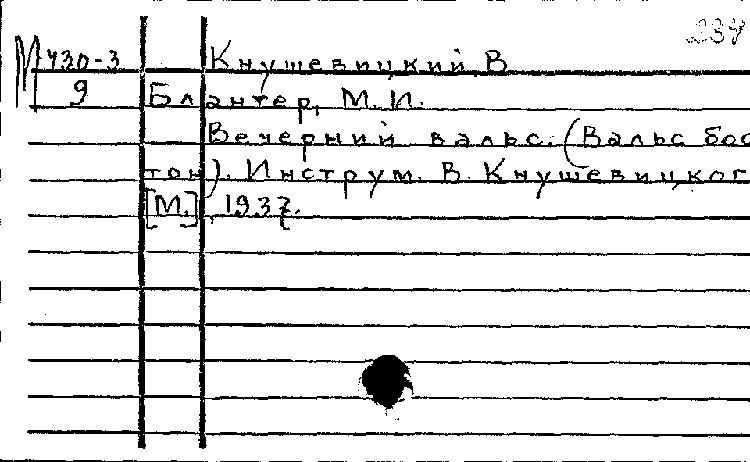 237
М 430-3 Кнушевицкий В
9 Блантер, М. И.
Вечерний вальс. (Вальс бос
тон). Инструм. В. Кнушевицког
[М.], 1937.